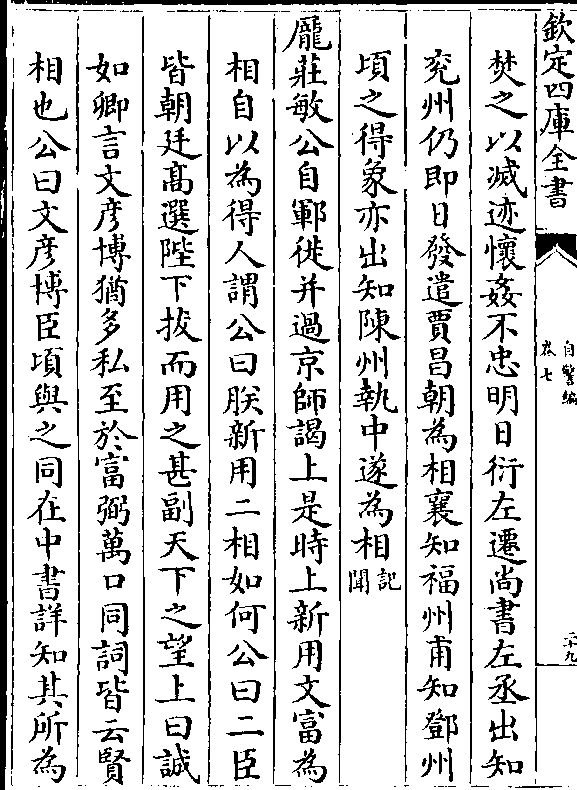 欽定四庫全書
自警編
卷七
二十九
焚之以滅迹懷姦不忠明日衍左遷尚書左丞出知
兖州仍即日發遣賈昌朝為相襄知福州甫知鄧州
頃之得象亦出知陳州執中遂為相記聞
龎莊敏公自鄆徙并過京師謁上是時上新用文富為
相自以為得人謂公曰朕新用二相如何公曰二臣
皆朝廷髙選陛下拔而用之甚副天下之望上曰誠
如卿言文彦博猶多私至於富弼萬口同詞皆云賢
相也公曰文彦博臣頃與之同在中書詳知其所為